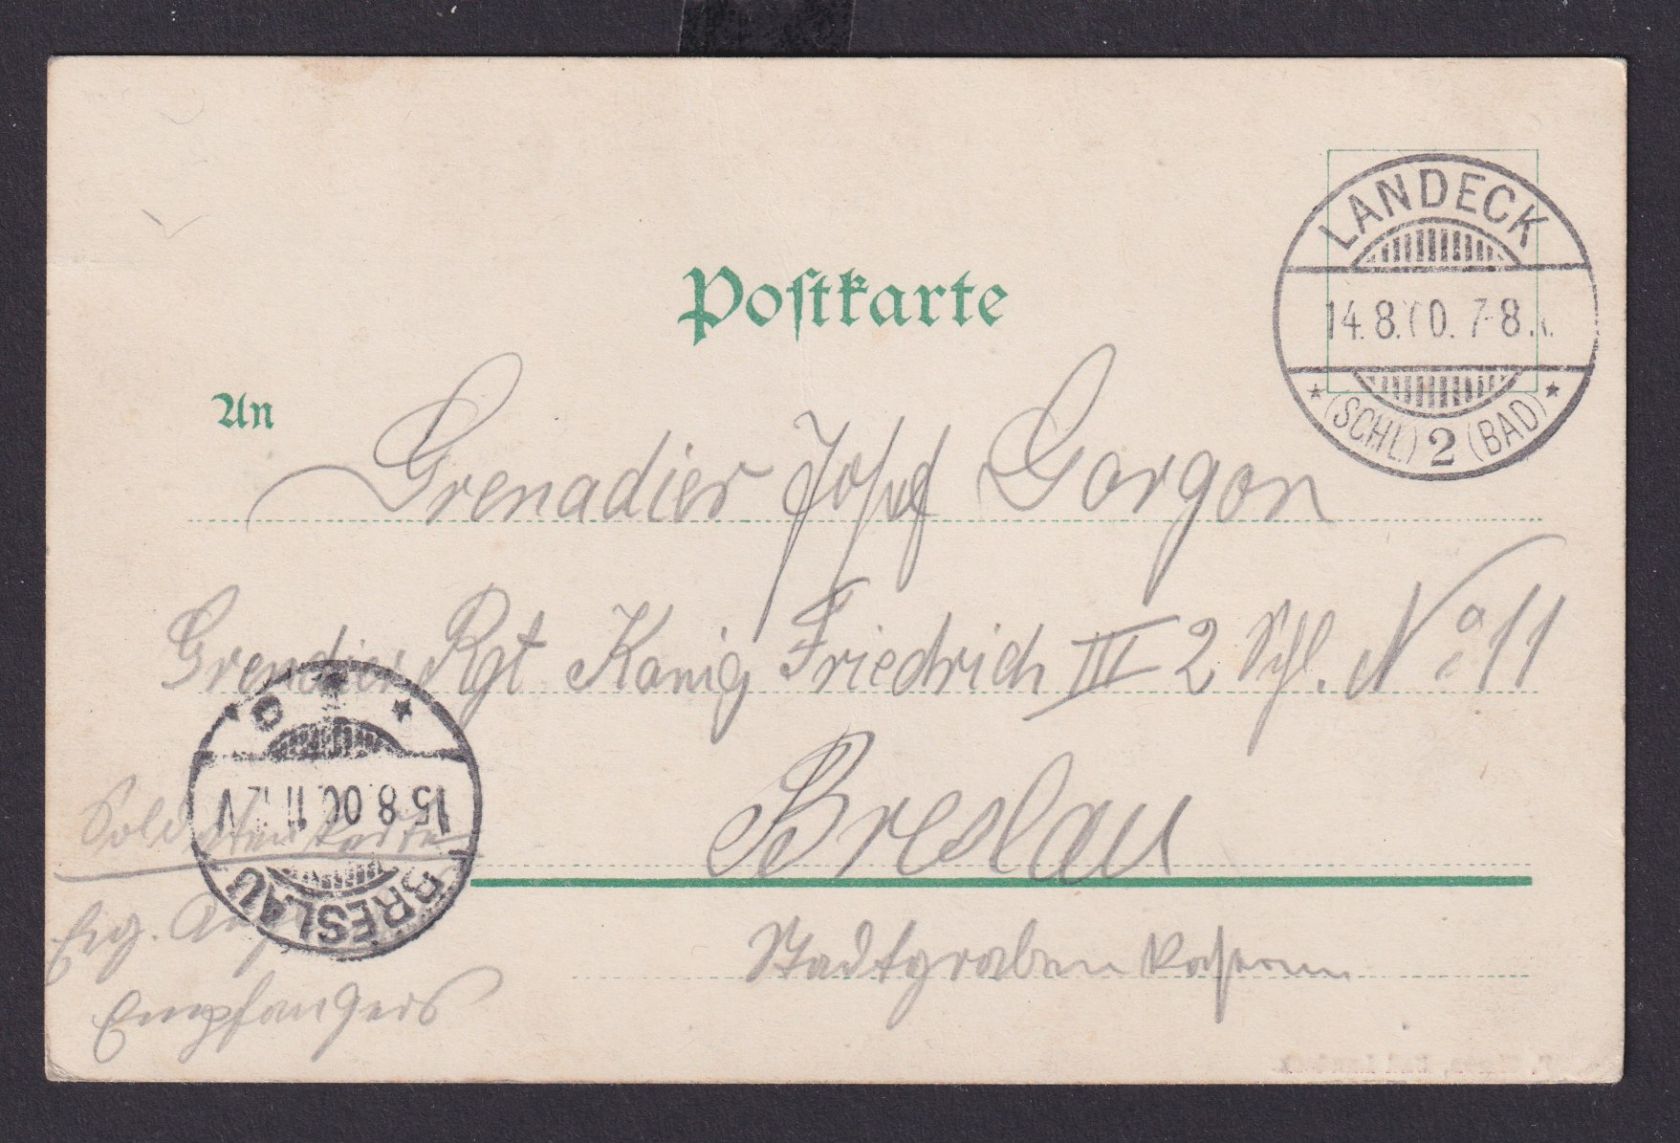 LANDECK
14.8.00. 7-8
(SCHL) 2 (BAD)
Poſtkarte
An
Grenadier Josef Gorgon
Grendier Rgt König Friedrich III 2 Schl. No 11
Breslau
Stadtgraben Kaserne
Soldatenkarte
Eig. Ang.
Empfängers
BRESLAU
15.8.00.11-12V